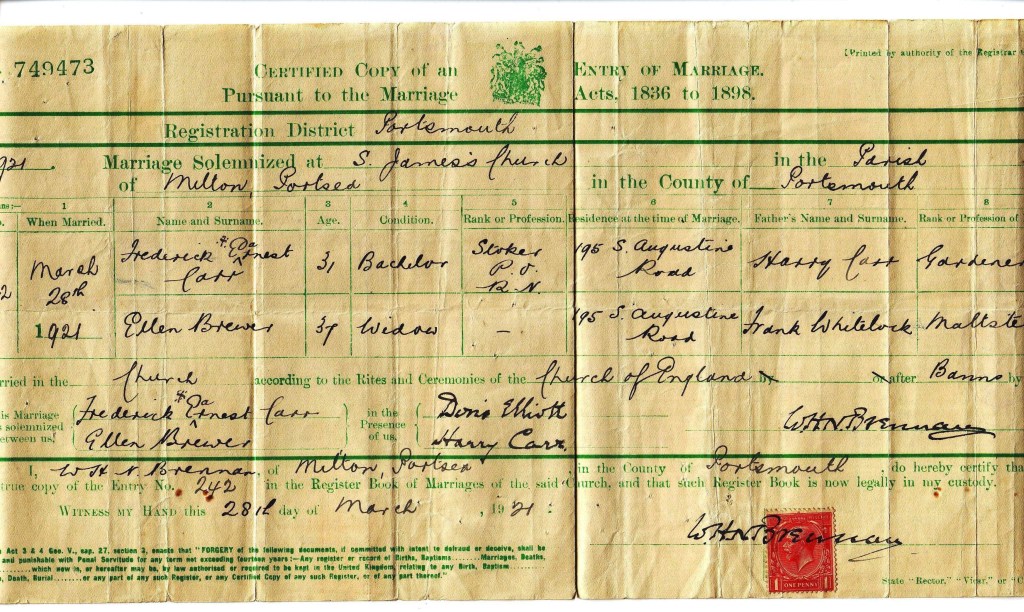 749473
[Printed by authority of the Registrar
CERTIFIED COPY OF AN ENTRY OF MARRIAGE.
PURSUANT TO THE MARRIAGE ACTS. 1836 TO 1898.
Registration District Portsmouth
921. Marriage Solemnized at S. James's Church in the Parish
of Milton Portsea in the County of Portsmouth
1 2 3 4 5 6 7 8
When Married. Name and Surname. Age. Condition. Rank or Profession. Residence at the time of Marriage. Father's Name and Surname. Rank or Profession of
March 28th 1921
Frederick Ernest Carr 31 Bachelor Stoker P.O. R.N. 195 S. Augustine Road Harry Carr Gardener
Ellen Brewer 37 Widow — 195 S. Augustine Road Frank Whitelock Maltste
rried in the Church according to the Rites and Ceremonies of the Church of England by or after Banns by
is Marriage solemnized between us, Frederick Ernest Carr Ellen Brewer in the Presence of us, Doris Elliott Harry Carr.
W.H.N. Brennan
I, W H N. Brennan, of Milton, Portsea, in the County of Portsmouth, do hereby certify tha
true copy of the Entry No. 242 in the Register Book of Marriages of the said Church, and that such Register Book is now legally in my custody.
WITNESS MY HAND this 28th day of March, 1921:
W.H.N. Brennan
Act 3 & 4 Geo. V., cap. 27, section 3, enacts that "FORGERY of the following documents, if committed with intent to defraud or deceive, shall be
and punishable with Penal Servitude for any term not exceeding fourteen years:—Any register or record of Births, Baptisms ......... Marriages, Deaths,
which now is, or hereafter may be, by law authorised or required to be kept in the United Kingdom, relating to any Birth, Baptism
, Death, Burial ......... or any part of any such Register, or any Certified Copy of any such Register, or of any part thereof."
1 ONE PENNY 1
State "Rector," "Vicar," or "C